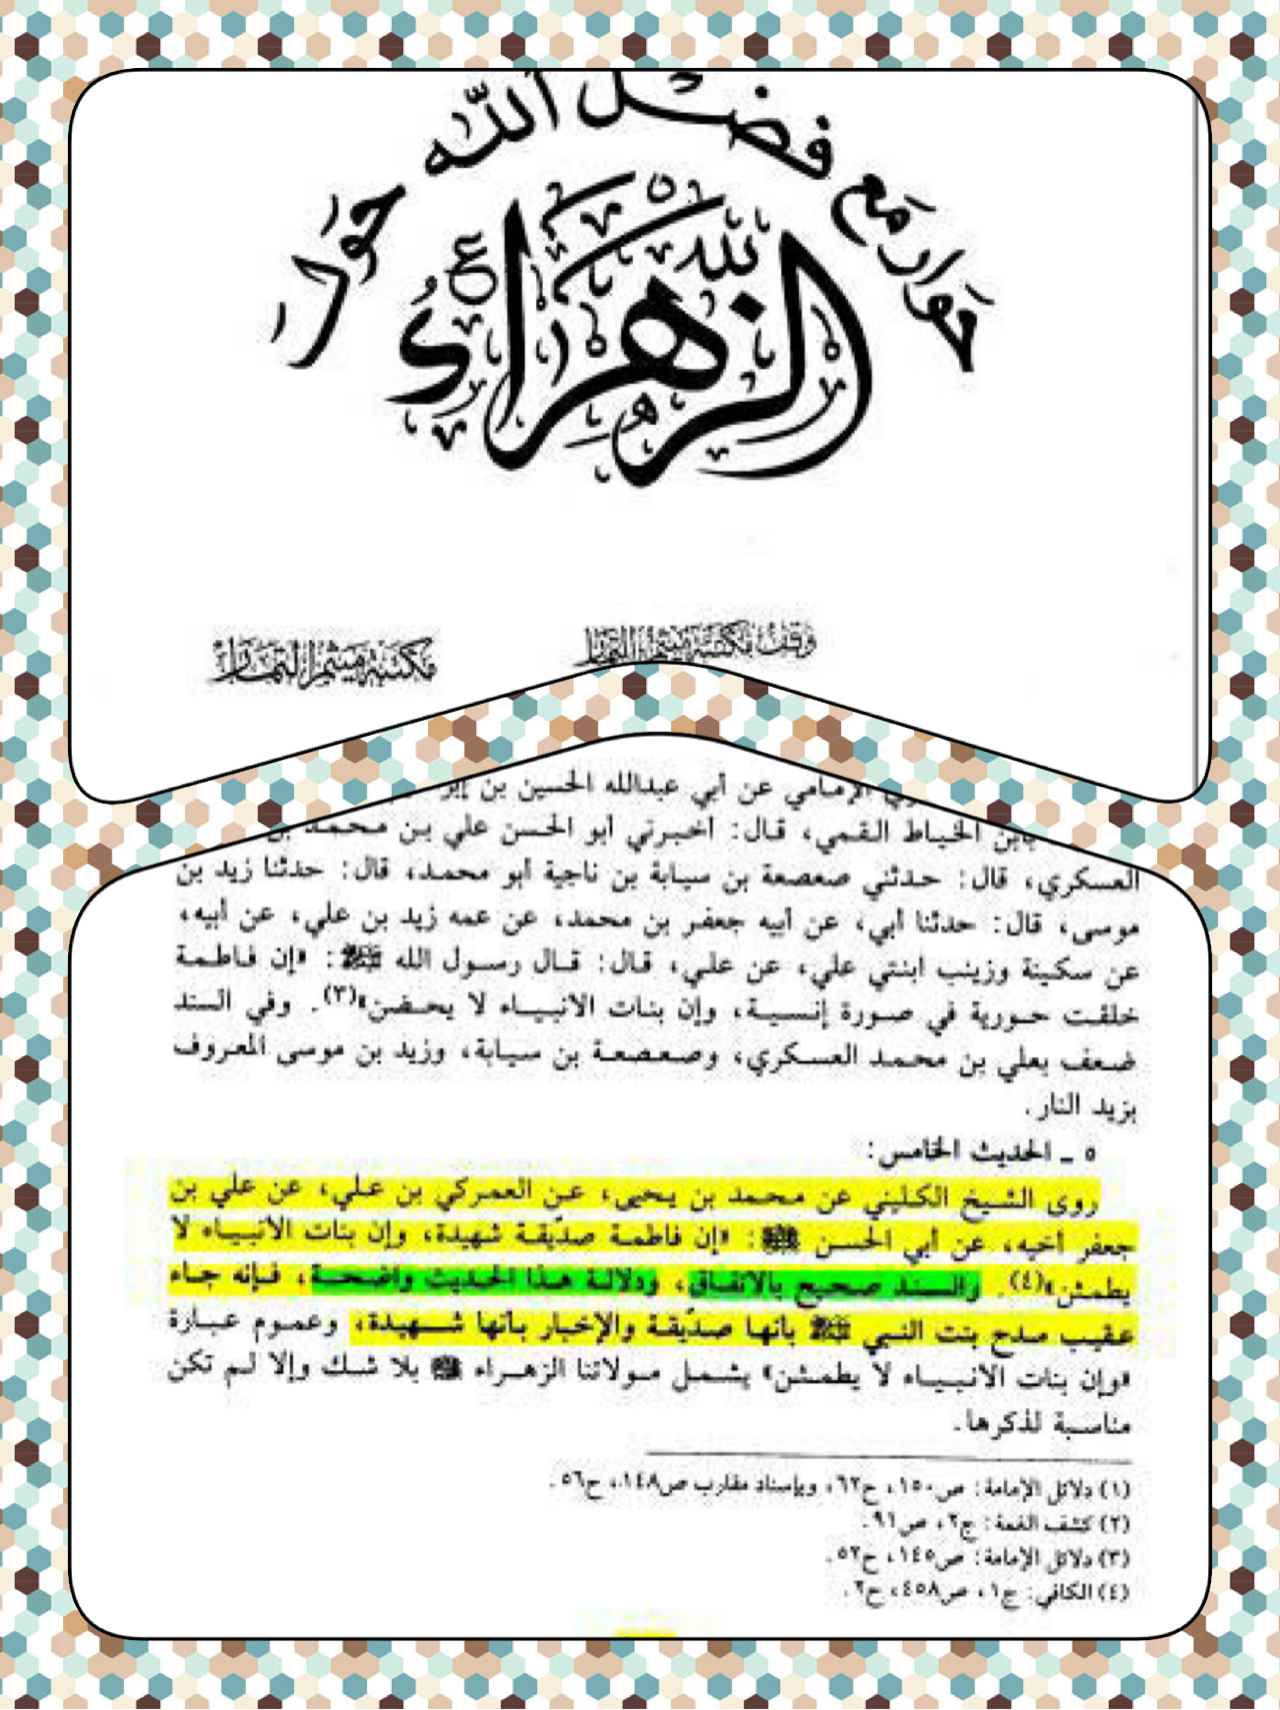 حوار مع فضل الله حول
الزهراء
وقف مكتبة ميثم التمار
مكتبة ميثم التمار
الإمامي عن أبي عبدالله الحسين بن
بابن الخياط القمي، قال: أخبرني أبو الحسن علي بن محمد بن
العسكري، قال: حدثني صعصعة بن سيابة بن ناجية أبو محمد، قال: حدثنا زيد بن
موسى، قال: حدثنا أبي، عن أبيه جعفر بن محمد، عن عمه زيد بن علي، عن أبيه،
عن سكينة وزينب ابنتي علي، عن علي، قال: قال رسول الله ﷺ: «إن فاطمة
خلقت حورية في صورة إنسية، وإن بنات الانبياء لا يحضن»(٣). وفي السند
ضعف بعلي بن محمد العسكري، وصعصعة بن سيابة، وزيد بن موسى المعروف
بزيد النار.
٥ ـ الحديث الخامس:
روى الشيخ الكليني عن محمد بن يحيى، عن العمركي بن علي، عن علي بن
جعفر أخيه، عن أبي الحسن : «إن فاطمة صدّيقة شهيدة، وإن بنات الانبياء لا
يطمثن»(٤). والسند صحيح بالاتفاق، ودلالة هذا الحديث واضحة، فإنه جاء
عقيب مدح بنت النبي ﷺ بأنها صدّيقة والإخبار بأنها شهيدة، وعموم عبارة
«وإن بنات الانبياء لا يطمثن» يشمل مولاتنا الزهراء بلا شك وإلا لم تكن
مناسبة لذكرها.
(١) دلائل الإمامة: ص١٥٠، ح٦٢، وبإسناد مقارب ص١٤٨، ح٥٦.
(٢) كشف الغمة: ج٢، ص٩١.
(٣) دلائل الإمامة: ص١٤٥، ح٥٢.
(٤) الكافي: ج١، ص٤٥٨، ح٢.